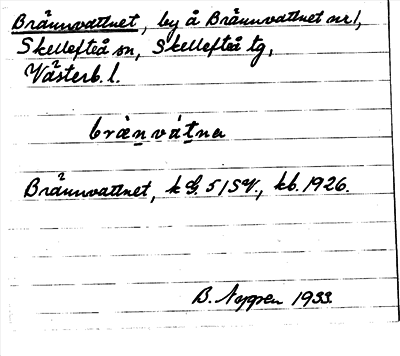 Brännvattnet, by å Brännvattnet nr 1,
Skellefteå sn, Skellefteå tg,
Västerb. l.
brànvátna
Brännvattnet, k 51SV., kb. 1926.
B. Nygren 1933.